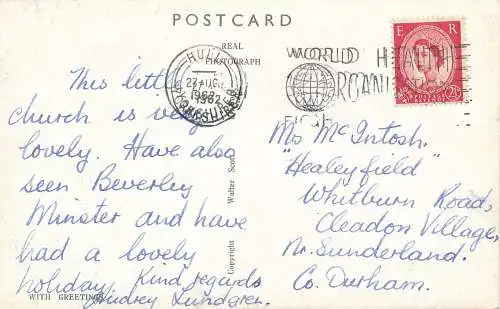 POSTCARD
REAL
PHOTOGRAPH
HULL
27 AUG
1962
YORKSHIRE
WORLD HEALTH
ORGANI
E R
2½D
This little
church is very
lovely. Have also
seen Beverley
Minster and have
had a lovely
holiday. Kind regards
Audrey Lundgren.
WITH GREETINGS
Copyright Walter Scott
Mrs McIntosh.
"Healeyfield"
Whitburn Road,
Cleadon Village,
Nr. Sunderland.
Co. Durham.